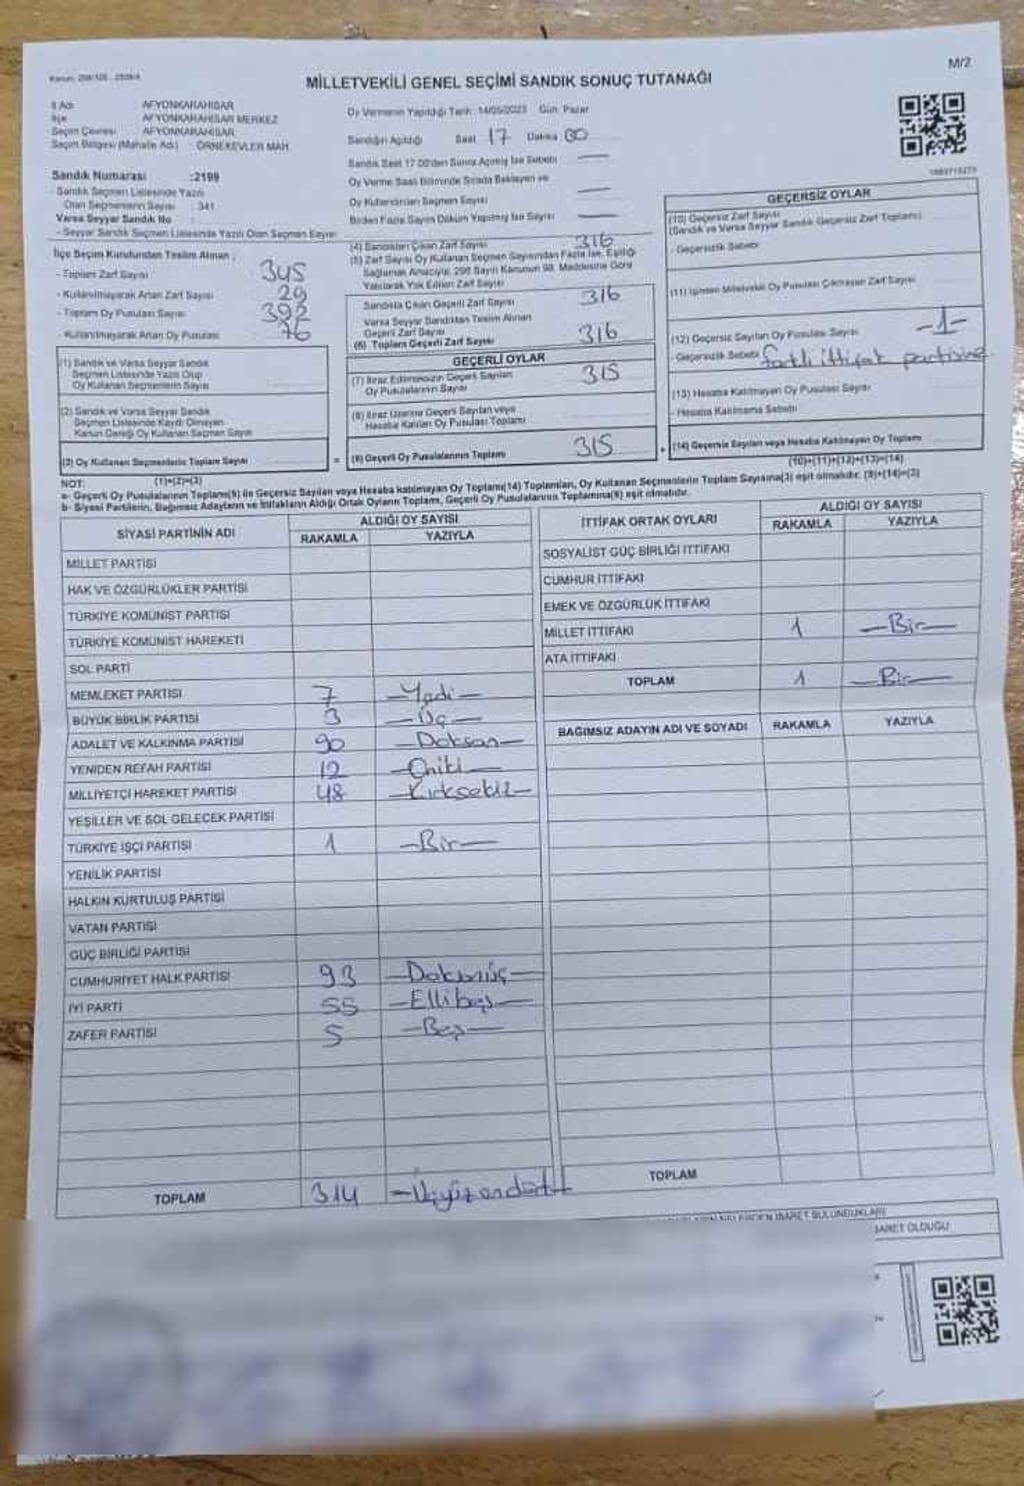 M/2
MİLLETVEKİLİ GENEL SEÇİMİ SANDIK SONUÇ TUTANAĞI
İl Adı AFYONKARAHİSAR
İlçe AFYONKARAHİSAR MERKEZ
Seçim Çevresi AFYONKARAHİSAR
Seçim Bölgesi (Mahalle Adı) : ÖRNEKEVLER MAH.
Sandık Numarası :2199
- Sandık Seçmen Listesinde Yazılı
Olan Seçmenlerin Sayısı : 341
Varsa Seyyar Sandık No :
- Seyyar Sandık Seçmen Listesinde Yazılı Olan Seçmen Sayısı
Oy Vermenin Yapıldığı Tarih: 14/05/2023 Gün: Pazar
Sandığın Açıldığı Saat 17 Dakika 00
Sandık Saat 17.00'den Sonra Açılmış İse Sebebi —
Oy Verme Saati Bitiminde Sırada Bekleyen ve
Oy Kullandırılan Seçmen Sayısı —
Birden Fazla Sayım Döküm Yapılmış İse Sayısı —
İlçe Seçim Kurulundan Teslim Alınan ;
- Toplam Zarf Sayısı 345
- Kullanılmayarak Artan Zarf Sayısı 29
- Toplam Oy Pusulası Sayısı 392
- Kullanılmayarak Artan Oy Pusulası 76
(1) Sandık ve Varsa Seyyar Sandık
Seçmen Listesinde Yazılı Olup
Oy Kullanan Seçmenlerin Sayısı
(2) Sandık ve Varsa Seyyar Sandık
Seçmen Listesinde Kaydı Olmayan
Kanun Gereği Oy Kullanan Seçmen Sayısı
(3) Oy Kullanan Seçmenlerin Toplam Sayısı
(1)+(2)=(3)
(4) Sandıktan Çıkan Zarf Sayısı 316
(5) Zarf Sayısı Oy Kullanan Seçmen Sayısından Fazla İse, Eşitliği
Sağlamak Amacıyla, 298 Sayılı Kanunun 98. Maddesine Göre
Yakılarak Yok Edilen Zarf Sayısı
Sandıkta Çıkan Geçerli Zarf Sayısı 316
Varsa Seyyar Sandıktan Teslim Alınan
Geçerli Zarf Sayısı
(6) Toplam Geçerli Zarf Sayısı 316
GEÇERLİ OYLAR
(7) İtiraz Edilmeksizin Geçerli Sayılan
Oy Pusulalarının Sayısı 315
(8) İtiraz Üzerine Geçerli Sayılan veya
Hesaba Katılan Oy Pusulası Toplamı
= (9) Geçerli Oy Pusulalarının Toplamı 315
GEÇERSİZ OYLAR
(10) Geçersiz Zarf Sayısı
(Sandık ve Varsa Seyyar Sandık Geçersiz Zarf Toplamı)
- Geçersizlik Sebebi
(11) İçinden Milletvekili Oy Pusulası Çıkmayan Zarf Sayısı
(12) Geçersiz Sayılan Oy Pusulası Sayısı -1-
- Geçersizlik Sebebi farklı ittifak partisine
(13) Hesaba Katılmayan Oy Pusulası Sayısı
- Hesaba Katılmama Sebebi
+ (14) Geçersiz Sayılan veya Hesaba Katılmayan Oy Toplamı
(10)+(11)+(12)+(13)=(14)
NOT:
a- Geçerli Oy Pusulalarının Toplamı(9) ile Geçersiz Sayılan veya Hesaba katılmayan Oy Toplamı(14) Toplamları, Oy Kullanan Seçmenlerin Toplam Sayısına(3) eşit olmalıdır. (9)+(14)=(3)
b- Siyasi Partilerin, Bağımsız Adayların ve İttifakların Aldığı Ortak Oyların Toplamı, Geçerli Oy Pusulalarının Toplamına(9) eşit olmalıdır.
SİYASİ PARTİNİN ADI ALDIĞI OY SAYISI
RAKAMLA YAZIYLA
MİLLET PARTİSİ
HAK VE ÖZGÜRLÜKLER PARTİSİ
TÜRKİYE KOMÜNİST PARTİSİ
TÜRKİYE KOMÜNİST HAREKETİ
SOL PARTİ
MEMLEKET PARTİSİ 7 -Yedi-
BÜYÜK BİRLİK PARTİSİ 3 -Üç-
ADALET VE KALKINMA PARTİSİ 90 -Doksan-
YENİDEN REFAH PARTİSİ 12 -Oniki-
MİLLİYETÇİ HAREKET PARTİSİ 48 -Kırksekiz-
YEŞİLLER VE SOL GELECEK PARTİSİ
TÜRKİYE İŞÇİ PARTİSİ 1 -Bir-
YENİLİK PARTİSİ
HALKIN KURTULUŞ PARTİSİ
VATAN PARTİSİ
GÜÇ BİRLİĞİ PARTİSİ
CUMHURİYET HALK PARTİSİ 93 -Doksanüç-
İYİ PARTİ 55 -Ellibeş-
ZAFER PARTİSİ 5 -Beş-
TOPLAM 314 -Üçyüzondört-
İTTİFAK ORTAK OYLARI ALDIĞI OY SAYISI
RAKAMLA YAZIYLA
SOSYALİST GÜÇ BİRLİĞİ İTTİFAKI
CUMHUR İTTİFAKI
EMEK VE ÖZGÜRLÜK İTTİFAKI
MİLLET İTTİFAKI 1 -Bir-
ATA İTTİFAKI
TOPLAM 1 -Bir-
BAĞIMSIZ ADAYIN ADI VE SOYADI RAKAMLA YAZIYLA
TOPLAM
İBARET BULUNDUKLARI
İBARET OLDUĞU